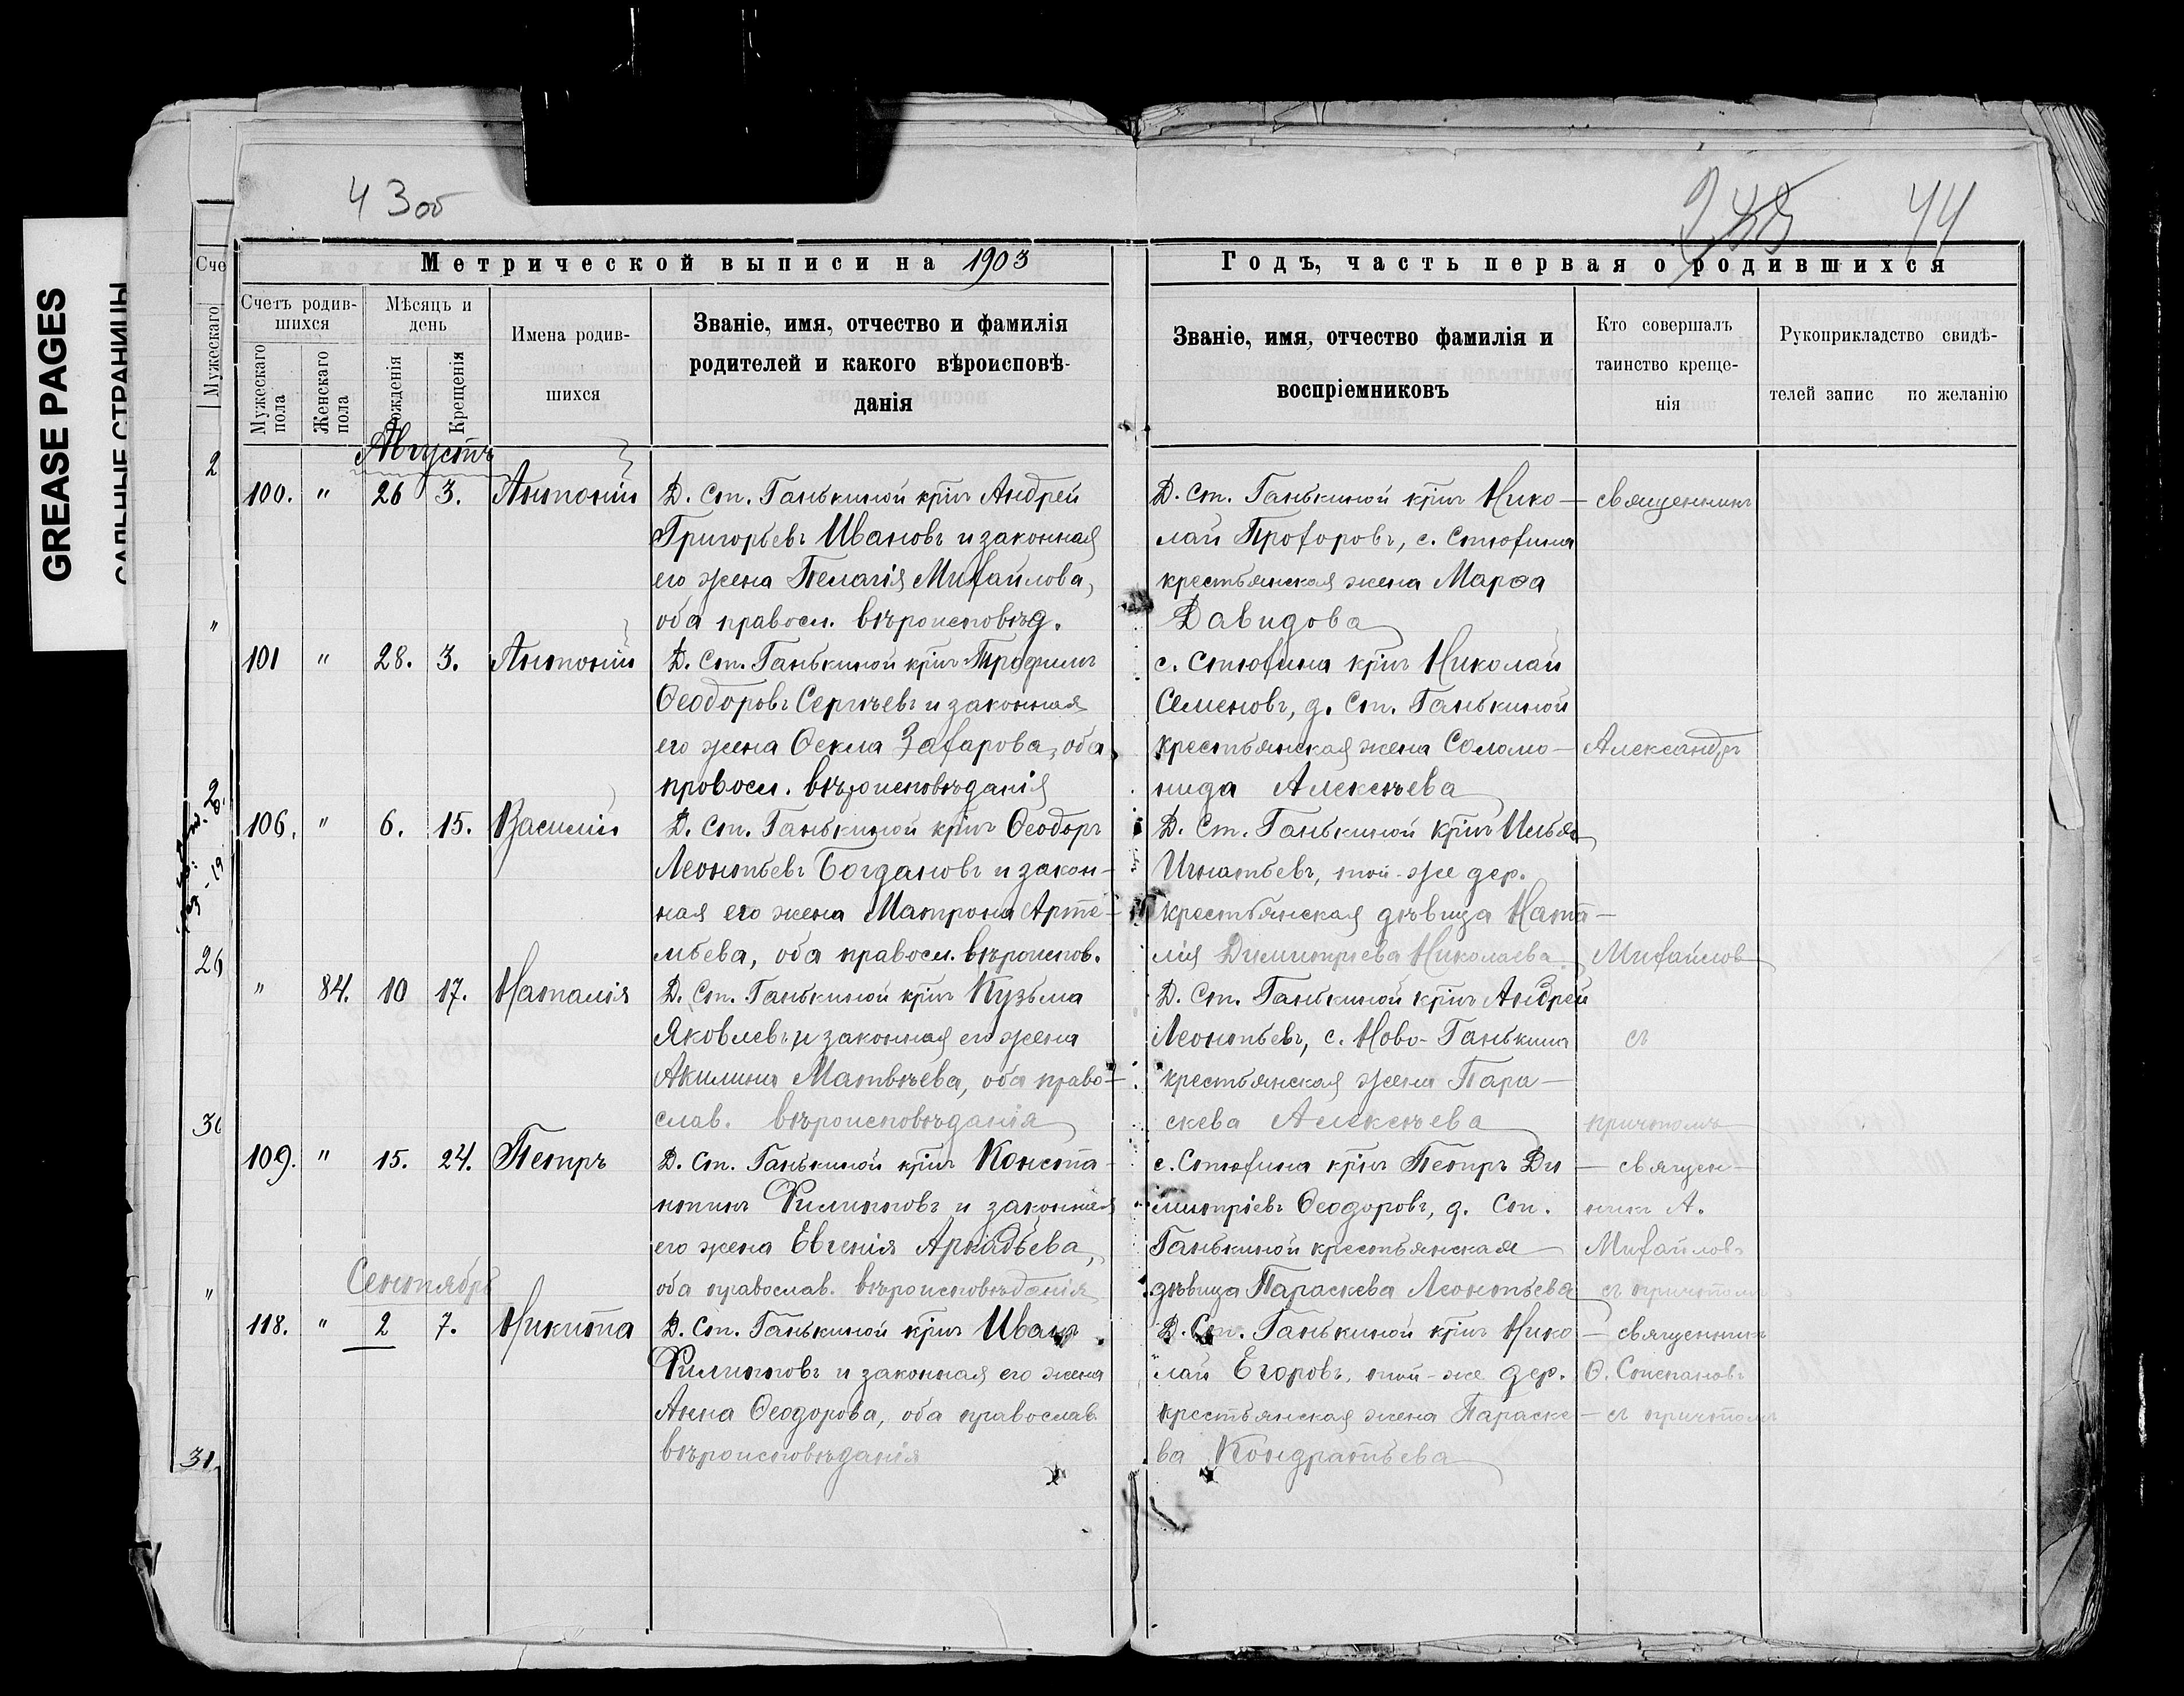 GREASE PAGES
САЛЬНЫЕ СТРАНИЦЫ
43 об
44
Метрической выписи на 1903
Годъ, часть первая о родившихся
Счетъ родив-
шихся
Мужескаго пола
Женскаго пола
Мѣсяцъ и
день
Рожденія
Крещенія
Имена родив-
шихся
Званіе, имя, отчество и фамилія
родителей и какого вѣроисповѣ-
данія
Званіе, имя, отчество фамилія и
воспріемниковъ
Кто совершалъ
таинство креще-
нія
Рукоприкладство свидѣ-
телей запис по желанію
Августъ
100. " 26 3. Антоній Д. Ст. Ганькиной кр‍інъ Андрей
Григорьевъ Ивановъ и законная
его жена Пелагія Михайлова,
оба правосл. вѣроисповѣд.
Д. Ст. Ганькиной крінъ Нико-
лай Прохоровъ, с. Стюхина
крестьянская жена Марѳа
Давидова
священникъ
101 " 28. 3. Антоній Д. Ст. Ганькиной крінъ Трофимъ
Ѳеодоровъ Сергѣевъ и законная
его жена Ѳекла Захарова, оба
провосл. вѣроисповѣданія
с. Стюхина крінъ Николай
Семеновъ, д. Ст. Ганькиной
крестьянская жена Соломо-
нида Алексѣева
Александръ
106. " 6. 15. Василій Д. Ст. Ганькиной крінъ Ѳеодоръ
Леонтьевъ Богдановъ и закон-
ная его жена Матрона Арте-
мьева, оба правосл. вѣроиспов.
Д. Ст. Ганькиной крінъ Илья
Игнатьевъ, той-же дер.
крестьянская дѣвица Ната-
лія Димитріева Николаева
Михайлов
" 84. 10 17. Наталія Д. Ст. Ганькиной крінъ Кузьма
Яковлевъ и законная его жена
Акилина Матвѣева, оба право-
слав. вѣроисповѣданія
Д. Ст. Ганькиной крінъ Андрей
Леонтьевъ, с. Ново-Ганькина
крестьянская жена Пара-
скева Алексѣева
съ
причтомъ
109. " 15. 24. Петръ Д. Ст. Ганькиной крінъ Конста-
нтинъ Филипповъ и законная
его жена Евгенія Аркадьева,
оба православ. вѣроисповѣданія
с. Стюхина крінъ Петръ Ди
митріевъ Ѳеодоровъ, д. Ст.
Ганькиной крестьянская
дѣвица Параскева Леонтьева
священ-
никъ А.
Михайловъ
съ причтомъ
Сентябрь
118. " 2 7. Никита Д. Ст. Ганькиной крінъ Иванъ
Филипповъ и законная его жена
Анна Ѳеодорова, оба православ.
вѣроисповѣданія
Д. Ст. Ганькиной крінъ Нико-
лай Егоровъ, той-же дер.
крестьянская жена Параске-
ва Кондратьева
священникъ
Ѳ. Степановъ
съ причтомъ